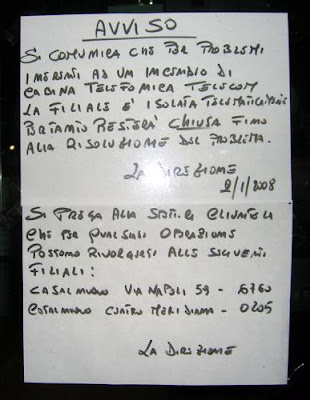 AVVISO
SI COMUNICA CHE PER PROBLEMI
INERENTI AD UN INCENDIO DI
CABINA TELEFONICA TELECOM
LA FILIALE E' ISOLATA TELEMATICAMENTE
PERTANTO RESTERÀ CHIUSA FINO
ALLA RISOLUZIONE DEL PROBLEMA.
LA DIREZIONE
2/1/2008
SI PREGA ALLA SPETT.LE CLIENTELA
CHE PER QUALSIASI OPERAZIONE
POSSONO RIVOLGERSI ALLE SEGUENTI
FILIALI:
CASALNUOVO VIA NAPOLI 59 - 6760
CASALNUOVO CENTRO MERIDIANA - 0205
LA DIREZIONE